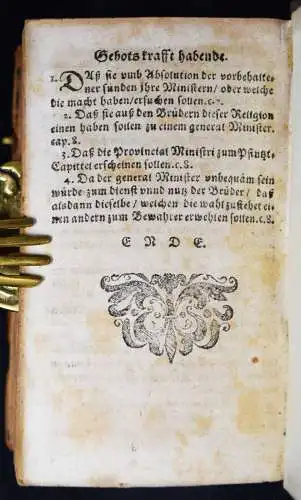 Gebots krafft habende.
1. Daß sie vmb Absolution der vorbehalte-
ner sunden Ihre Ministern / oder welche
die macht haben / ersuchen sollen. c.7.
2. Daß sie auß den Brüdern dieser Religion
einen haben sollen zu einem general Minister.
cap. 8.
3. Daß die Provincial Ministri zum Pfingst-
Capittel erscheinen sollen. c. 8.
4. Da der general Minister vnbequäm sein
würde zum dienst vnnd nutz der Brüder / daß
alsdann dieselbe / welchen die wahl zustehet ei-
nen andern zum Bewahrer erwehlen sollen. c. 8.
ENDE.